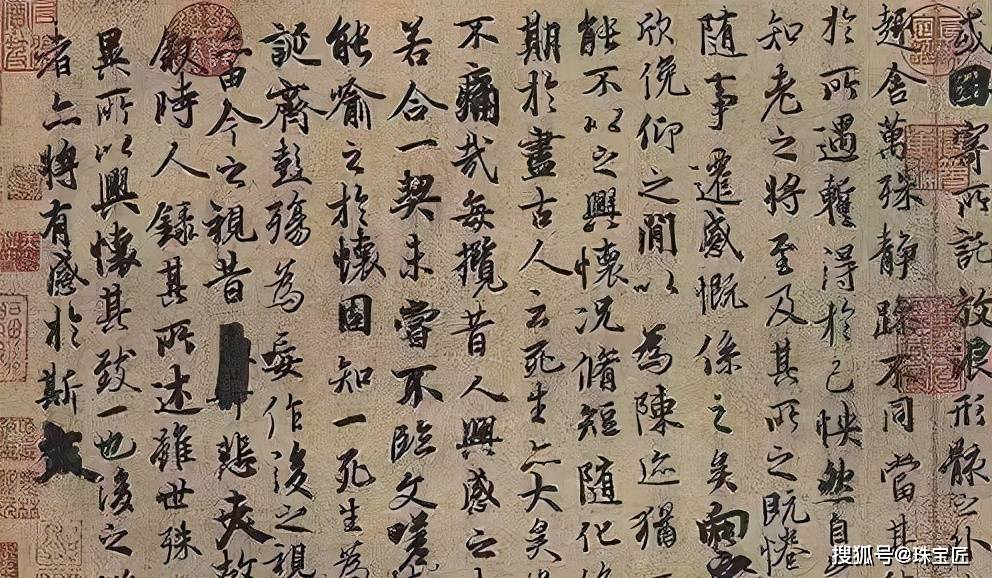 或因寄所託放浪形骸之外
趣舍萬殊靜躁不同當其
於所遇暫得於己怏然自
知老之將至及其所之既惓
隨事遷感慨係之矣向
欣俛仰之閒以為陳迹猶
能不以之興懷況脩短隨化
期於盡古人云死生亦大矣
不痛哉每攬昔人興感之
若合一契未嘗不臨文嗟
能喻之於懷固知一死生為
誕齊彭殤為妄作後之視
亦由今之視昔悲夫故
敘時人錄其所述雖世殊
異所以興懷其致一也後之
者亦將有感於斯文
搜狐号@珠宝匠